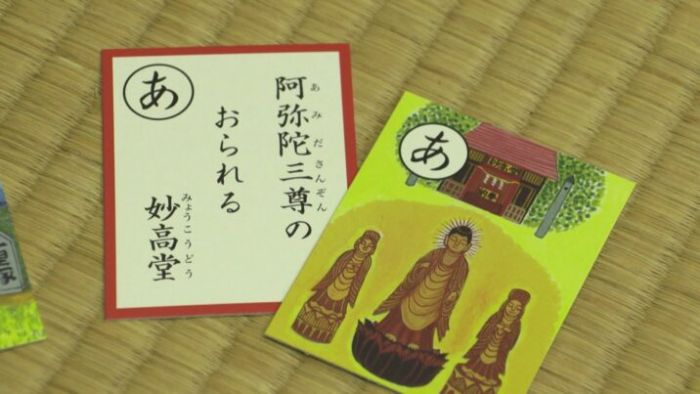 あ
阿弥陀三尊の
あみださんぞん
おられる
妙高堂
みょうこうどう
あ